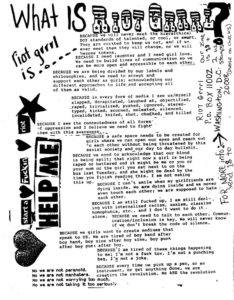 WHAT IS RIOT GRRRL?
riot grrrl
is........
BECAUSE we will never meet the hierarchical
BOY standards of talented, or cool, or smart.
They are created to keep us out, and if we
ever meet them they will change, or we will
become tokens.
BECAUSE I need laughter and I need girl love.
We need to build lines of communication so we
can be more open and accessible to each other.
BECAUSE we are being divided by our labels and
philosophies, and we need to accept and
support each other as girls; acknowledging our
different approaches to life and accepting all
of them as valid.
BECAUSE in every form of media I see us/myself
slapped, decapitated, laughed at, objectified,
raped, trivialized, pushed, ignored, stereo-
typed, kicked, scorned, molested, silenced,
invalidated, knifed, shot, choked, and killed.
BECAUSE I see the connectedness of all forms
of oppression and I believe we need to fight
them with this awareness.
BECAUSE a safe space needs to be created for
girls where we can open our eyes and reach out
to each other without being threatened by this
sexist society and our day to day bullshit.
BECAUSE we need to acknowledge that our blood
is being spilt; that right now a girl is being
raped or battered and it might be me or you or
your mom or the girl you sat next to on the
bus last Tuesday, and she might be dead by the
time you finish reading this. I am not making
this up.
BECAUSE I can't smile when my girlfriends are
dying inside. We are dying inside and we never
even touch each other; we are supposed to hate
each other.
BECAUSE I am still fucked up, I am still deal-
ing with internalized racism, sexism, classism,
homophobia, etc., and I don't want to do it
alone.
BECAUSE we need to talk to each other. Commun-
ication/inclusion is key. We will never know
if we don't break the code of silence.
BECAUSE we girls want to create mediums that
speak to US. We are tired of boy band after
boy band, boy zine after boy zine, boy punk
after boy punk after boy.
BECAUSE I am tired of these things happening
to me; I'm not a fuck toy. I'm not a punching
bag. I'm not a joke.
BECAUSE every time we pick up a pen, or an
instrument, or get anything done, we are
creating the revolution. We ARE the revolution
HELP ME
start a fuckin riot
RIOT GRRRL
PO Box 11002
WASHINGTON, D.C.
20008
No we are not paranoid.
No we are not manhaters.
No we are not worrying too much.
No we are not taking it too seriously.